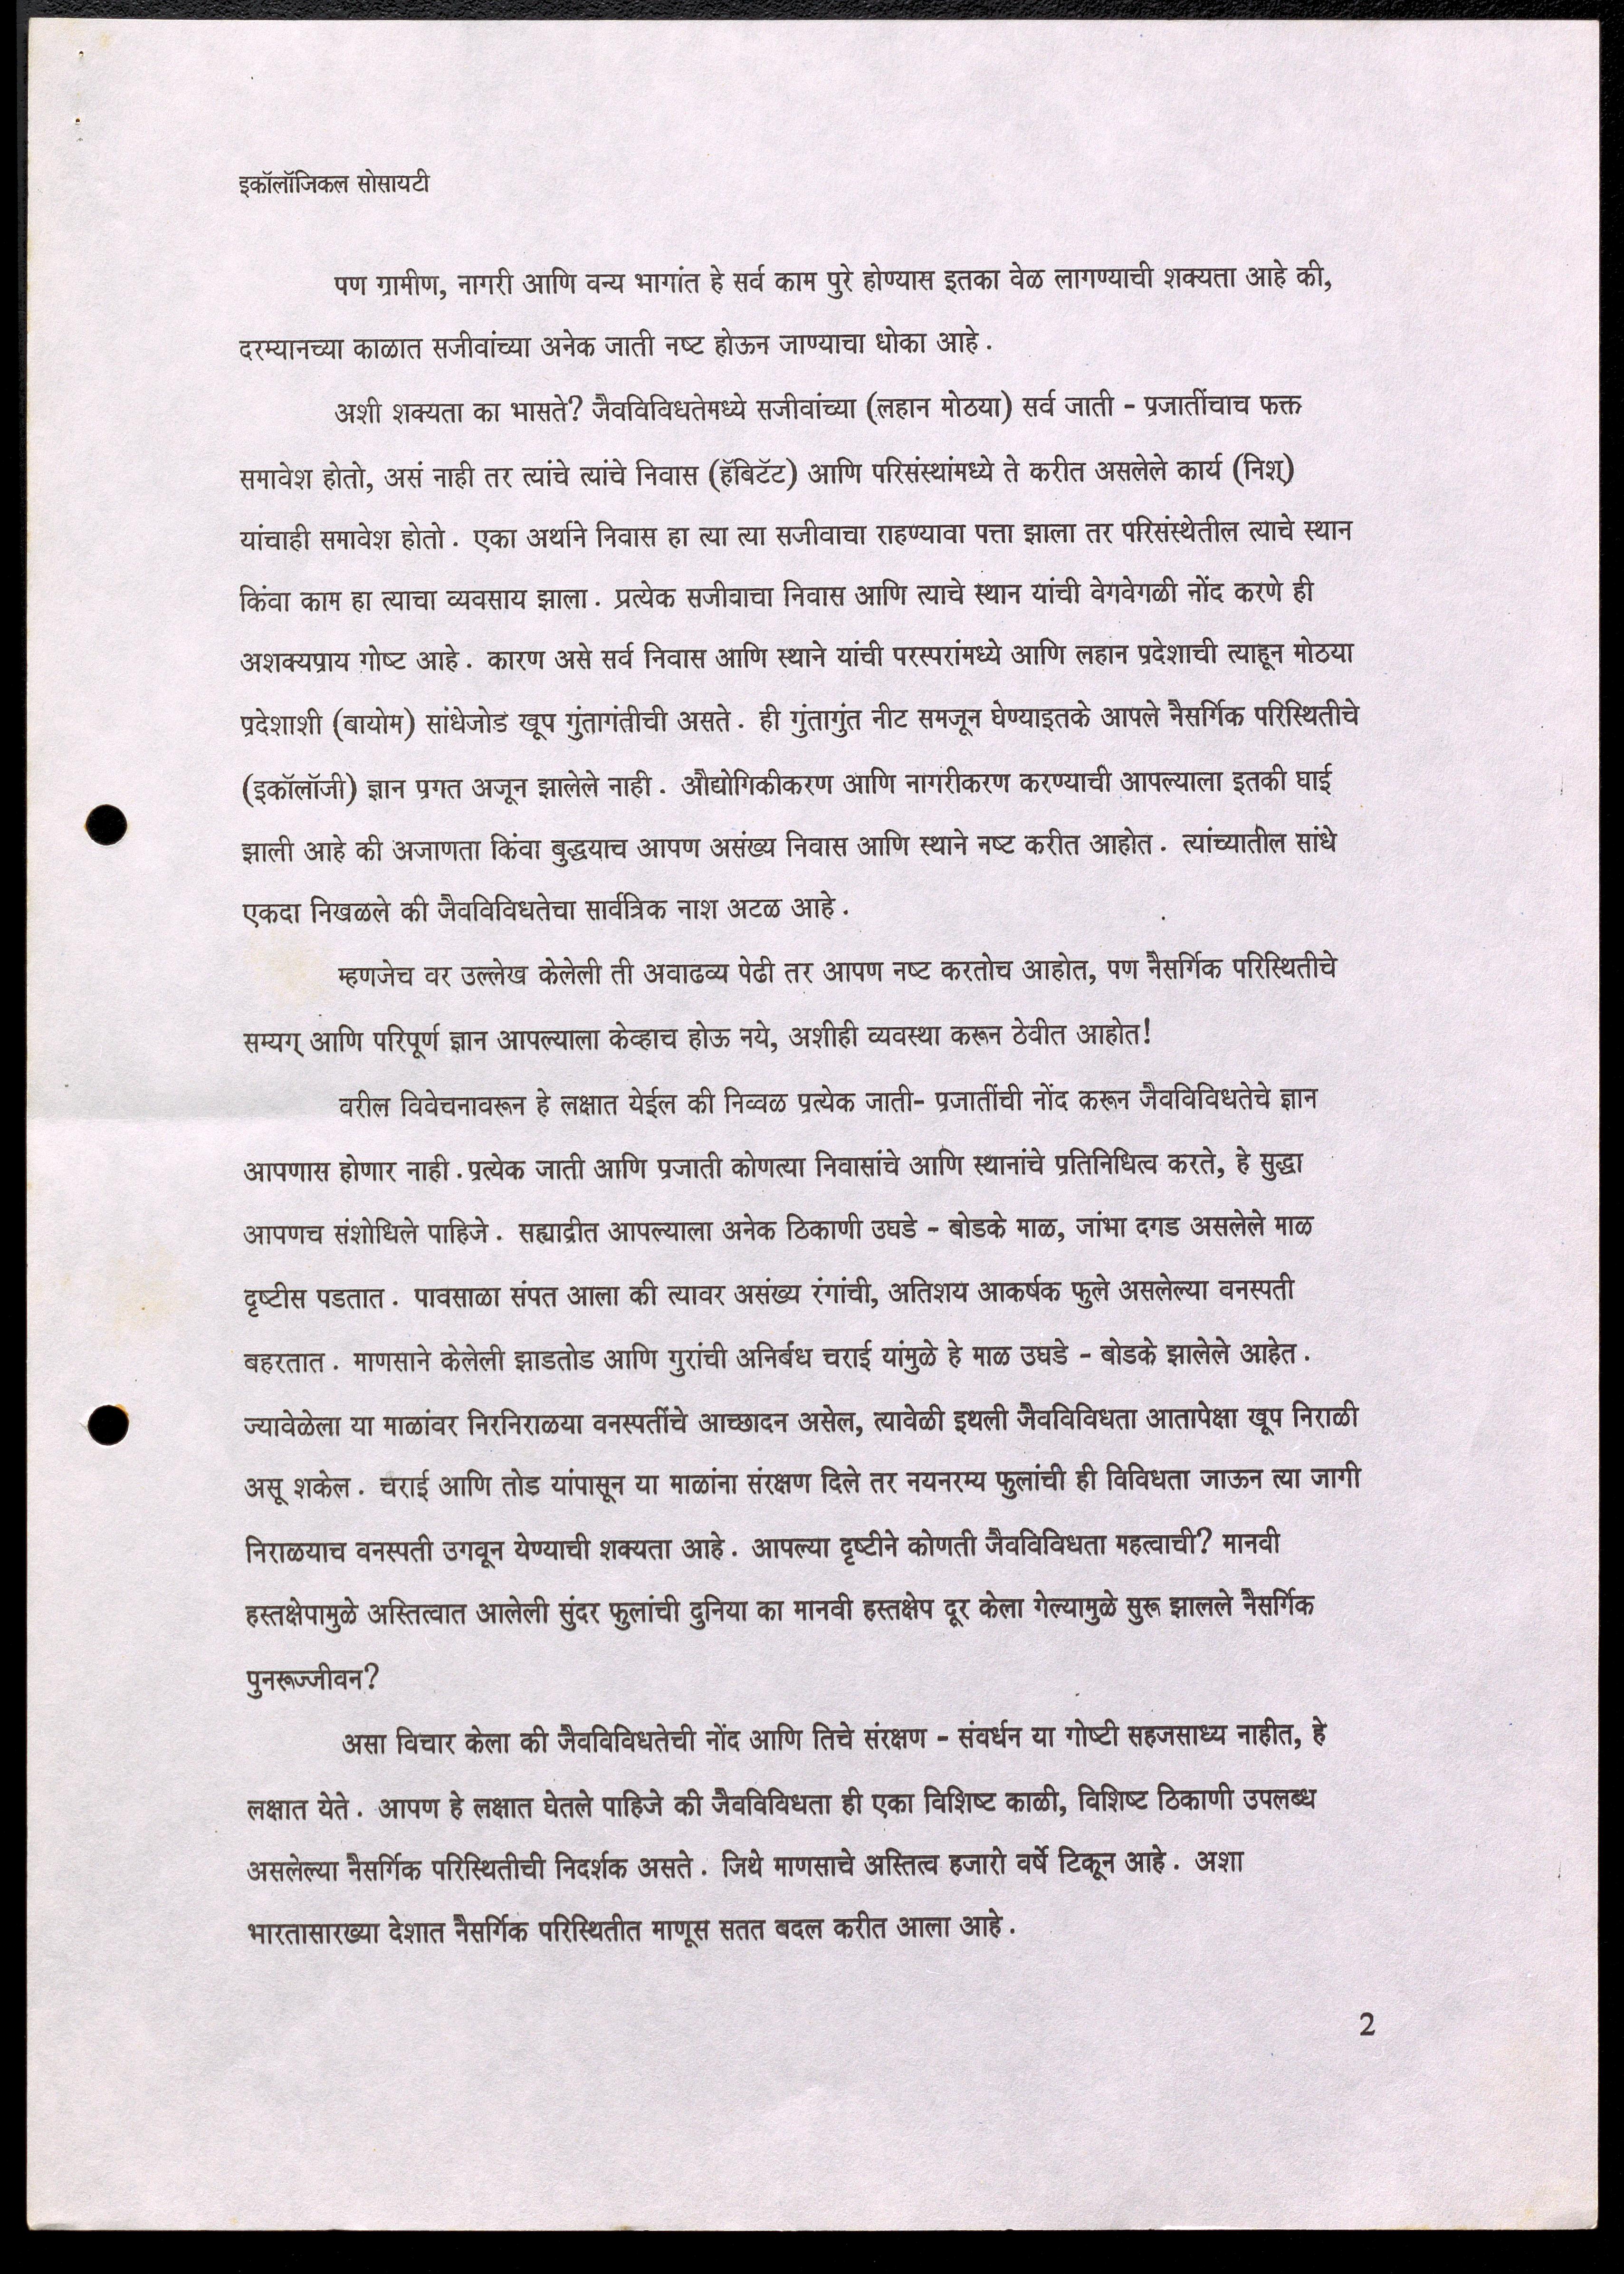 इकॉलॉजिकल सोसायटी
पण ग्रामीण, नागरी आणि वन्य भागांत हे सर्व काम पुरे होण्यास इतका वेळ लागण्याची शक्यता आहे की,
दरम्यानच्या काळात सजीवांच्या अनेक जाती नष्ट होऊन जाण्याचा धोका आहे.
अशी शक्यता का भासते? जैवविविधतेमध्ये सजीवांच्या (लहान मोठया) सर्व जाती - प्रजातींचाच फक्त
समावेश होतो, असं नाही तर त्यांचे त्यांचे निवास (हॅबिटॅट) आणि परिसंस्थांमध्ये ते करीत असलेले कार्य (निश्)
यांचाही समावेश होतो. एका अर्थाने निवास हा त्या त्या सजीवाचा राहण्यावा पत्ता झाला तर परिसंस्थेतील त्याचे स्थान
किंवा काम हा त्याचा व्यवसाय झाला. प्रत्येक सजीवाचा निवास आणि त्याचे स्थान यांची वेगवेगळी नोंद करणे ही
अशक्यप्राय गोष्ट आहे. कारण असे सर्व निवास आणि स्थाने यांची परस्परांमध्ये आणि लहान प्रदेशाची त्याहून मोठया
प्रदेशाशी (बायोम) सांधेजोड खूप गुंतागंतीची असते. ही गुंतागुंत नीट समजून घेण्याइतके आपले नैसर्गिक परिस्थितीचे
(इकॉलॉजी) ज्ञान प्रगत अजून झालेले नाही. औद्योगिकीकरण आणि नागरीकरण करण्याची आपल्याला इतकी घाई
झाली आहे की अजाणता किंवा बुद्धयाच आपण असंख्य निवास आणि स्थाने नष्ट करीत आहोत. त्यांच्यातील सांधे
एकदा निखळले की जैवविविधतेचा सार्वत्रिक नाश अटळ आहे.
म्हणजेच वर उल्लेख केलेली ती अवाढव्य पेढी तर आपण नष्ट करतोच आहोत, पण नैसर्गिक परिस्थितीचे
सम्यग् आणि परिपूर्ण ज्ञान आपल्याला केव्हाच होऊ नये, अशीही व्यवस्था करून ठेवीत आहोत!
वरील विवेचनावरून हे लक्षात येईल की निव्वळ प्रत्येक जाती- प्रजातींची नोंद करून जैवविविधतेचे ज्ञान
आपणास होणार नाही.प्रत्येक जाती आणि प्रजाती कोणत्या निवासांचे आणि स्थानांचे प्रतिनिधित्व करते, हे सुद्धा
आपणच संशोधिले पाहिजे. सह्याद्रीत आपल्याला अनेक ठिकाणी उघडे - बोडके माळ, जांभा दगड असलेले माळ
दृष्टीस पडतात. पावसाळा संपत आला की त्यावर असंख्य रंगांची, अतिशय आकर्षक फुले असलेल्या वनस्पती
बहरतात. माणसाने केलेली झाडतोड आणि गुरांची अनिर्बंध चराई यांमुळे हे माळ उघडे - बोडके झालेले आहेत.
ज्यावेळेला या माळांवर निरनिराळया वनस्पतींचे आच्छादन असेल, त्यावेळी इथली जैवविविधता आतापेक्षा खूप निराळी
असू शकेल. चराई आणि तोड यांपासून या माळांना संरक्षण दिले तर नयनरम्य फुलांची ही विविधता जाऊन त्या जागी
निराळयाच वनस्पती उगवून येण्याची शक्यता आहे. आपल्या दृष्टीने कोणती जैवविविधता महत्वाची? मानवी
हस्तक्षेपामुळे अस्तित्वात आलेली सुंदर फुलांची दुनिया का मानवी हस्तक्षेप दूर केला गेल्यामुळे सुरू झालले नैसर्गिक
पुनरूज्जीवन?
असा विचार केला की जैवविविधतेची नोंद आणि तिचे संरक्षण - संवर्धन या गोष्टी सहजसाध्य नाहीत, हे
लक्षात येते. आपण हे लक्षात घेतले पाहिजे की जैवविविधता ही एका विशिष्ट काळी, विशिष्ट ठिकाणी उपलब्ध
असलेल्या नैसर्गिक परिस्थितीची निदर्शक असते. जिथे माणसाचे अस्तित्व हजारो वर्षे टिकून आहे. अशा
भारतासारख्या देशात नैसर्गिक परिस्थितीत माणूस सतत बदल करीत आला आहे.
2